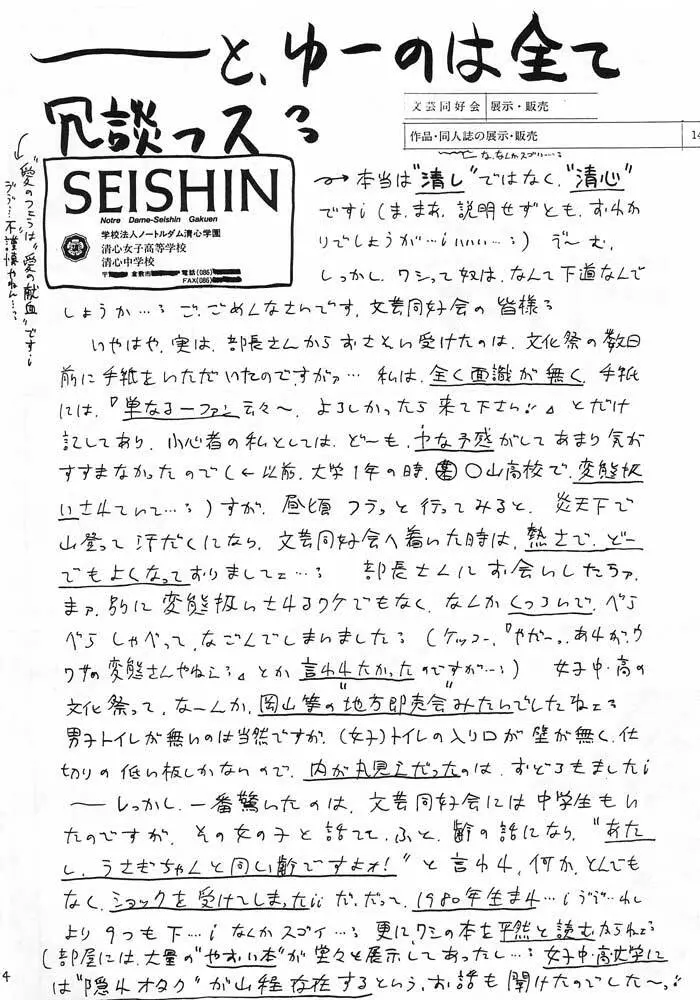 ――と、ゆーのは全て
冗談っス
文芸同好会 展示・販売
作品・同人誌の展示・販売 14
な、なんかスゴい…
"愛のつぇうは"愛の献血"です…
不謹慎やねん…
SEISHIN
Notre Dame-Seishin Gakuen
学校法人ノートルダム清心学園
清心女子高等学校
清心中学校
〒 倉敷市 電話(086)
FAX(086)
本当は"清し"ではなく、"清心"
です（ま、まあ、説明せずとも、おわか
りでしょうが…いいい…） でーむ、
しっかし、ワシって奴は、なんて下道なんで
しょうか… ご、ごめんなさいです、文芸同好会の皆様
いやはや、実は、部長さんからおさそい受けたのは、文化祭の数日
前に手紙をいただいたのですがァ… 私は、全く面識が無く、手紙
には、『単なる一ファン云々〜、よろしかったら来て下さい』とだけ
記してあり、小心者の私としては、ど〜も、ヤな予感がしてあまり気が
すすまなかったので（←以前、大学1年の時、○山高校で、変態扱
いされていて…）すが、昼頃フラっと行ってみると、炎天下で
山登って汗だくになり、文芸同好会へ着いた時は、熱さで、どー
でもよくなっておりまして… 部長さんにお会いしたらァ、
まァ、別に変態扱いされるワケでもなく、なんかくつろいで、べら
べらしゃべって、なごんでしまいました（ケッコー、『やだーっ、あれが、ウ
ワサの変態さんやねえ』とか言われたかったのですが…） 女子中・高の
文化祭って、なーんか、岡山等の"地方即売会"みたいでしたねェ
男子トイレが無いのは当然ですが、（女子）トイレの入り口が壁が無く、仕
切りの低い板しかないので、内が丸見えだったのは、おどろきました
――しっかし、一番驚いたのは、文芸同好会には中学生もい
たのですが、その女の子と話してて、ふと、齢の話になり、"あた
し、うさぎちゃんと同じ齢ですよォ!"と言われ、何か、とんでも
なく、ショックを受けてしまった だ、だって、1980年生まれ… わし
より9つも下… なんかスゴイ… 更に、ワシの本を平然と読むかられ
（部屋には、大量の"やおい本"が堂々と展示してあったし… 女子中・高・大学に
は"隠れオタク"が山程存在するという、お話も聞けたのでした〜。
4